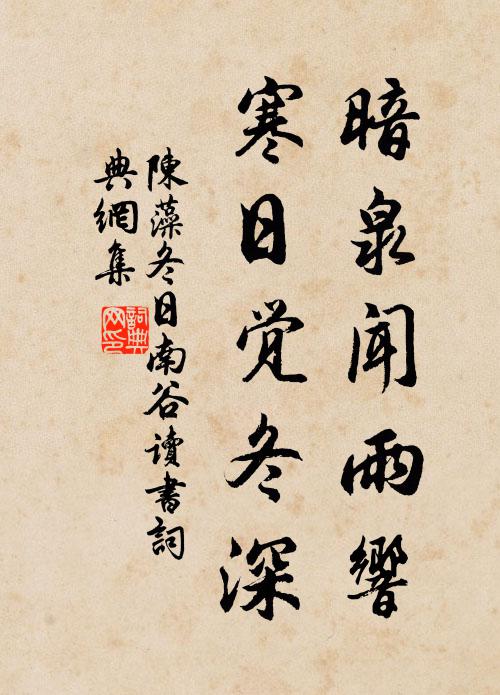 暗泉聞雨響
寒日覺冬深
陳藻冬日南谷讀書詞
典網集
詞典网印